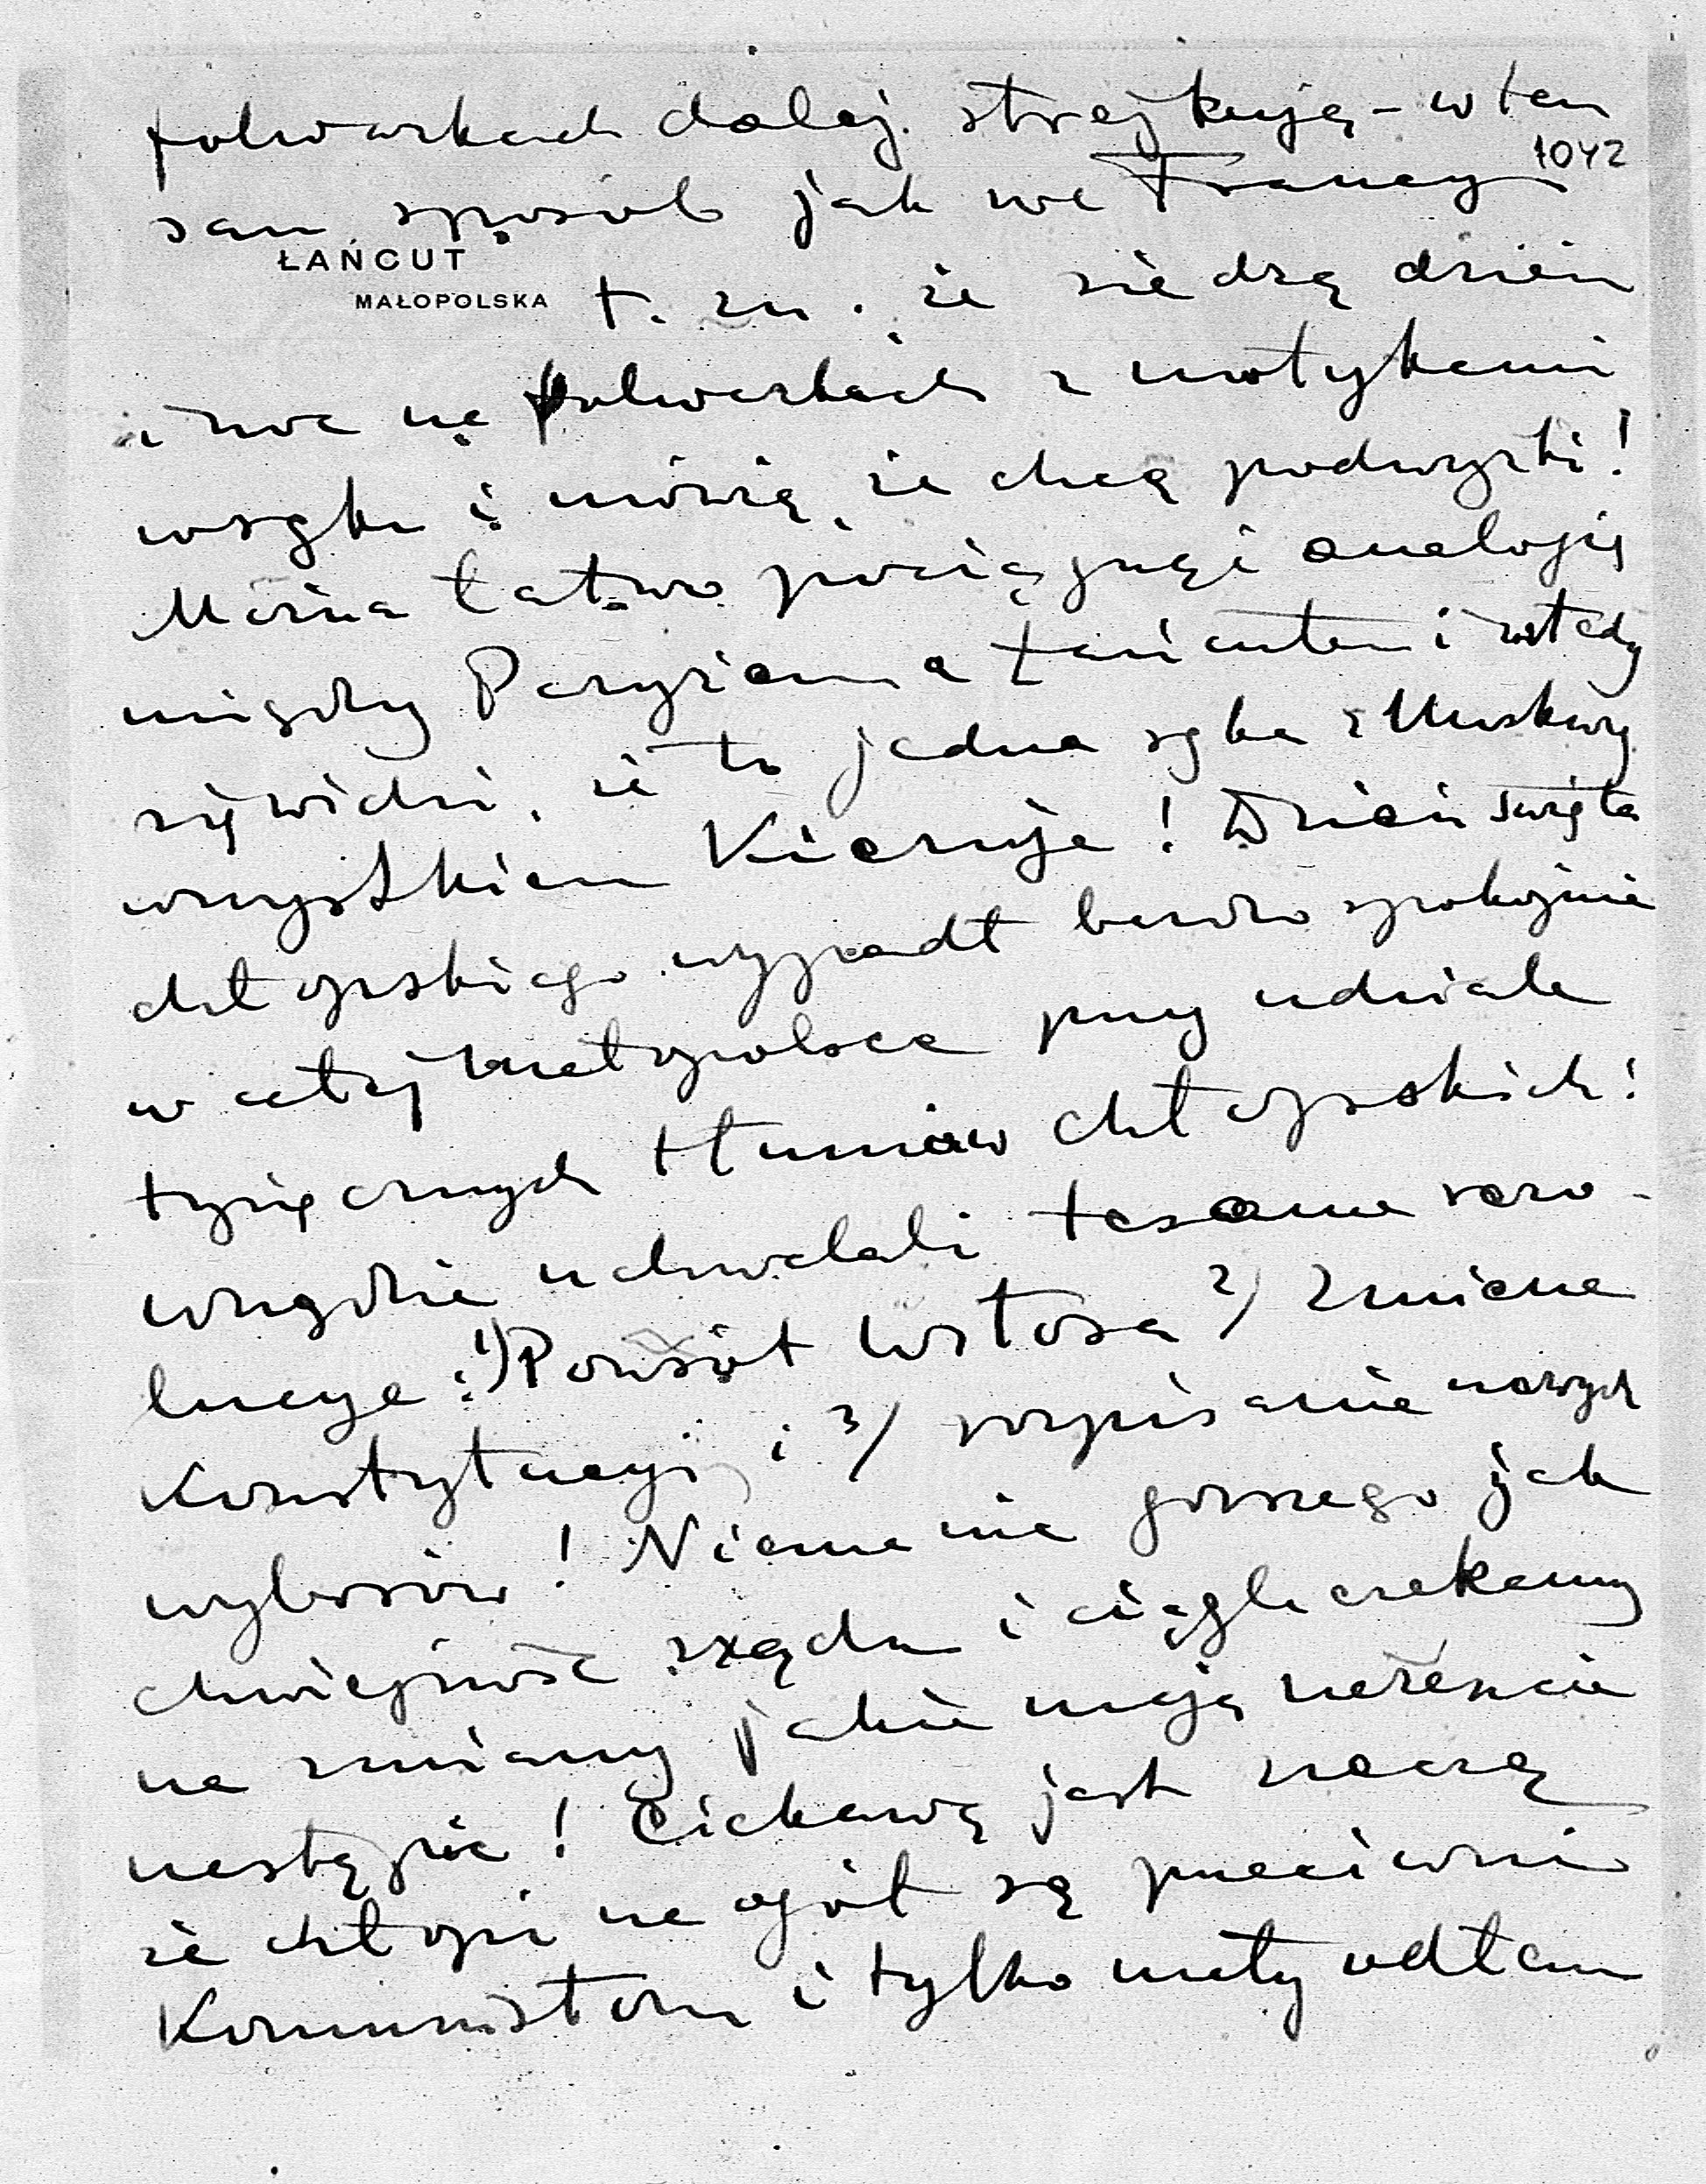 folwarkach dalej strejkują – w ten
1042
sam sposób jak we Francyi
ŁAŃCUT
MAŁOPOLSKA
t. zn. że siedzą dzień
i noc na folwarkach z motykami
w ręku i mówią, że chcą podwyżki!
Można łatwo pociągnąć analogię
między Paryżem a Łańcutem i wtedy
się widzi, że to jedna ręka z Moskwy
wszystkiem kieruje! Dzień święta
chłopskiego wypadł bardzo spokojnie
w całej Małopolsce przy udziale
tysięcznych tłumów chłopskich!
wszędzie uchwalali tesame rezo-
lucye: 1) Powrót Witosa 2) Zmiana
Konstytucyi i 3) rozpisanie nowych
wyborów! Niema nic gorszego jak
chwiejność rządu i ciągle czekamy
na zmiany jakie mają nareszcie
nastąpić! Ciekawą jest rzeczą
że chłopi na ogół są przeciwni
Komunistom i tylko mały odłam